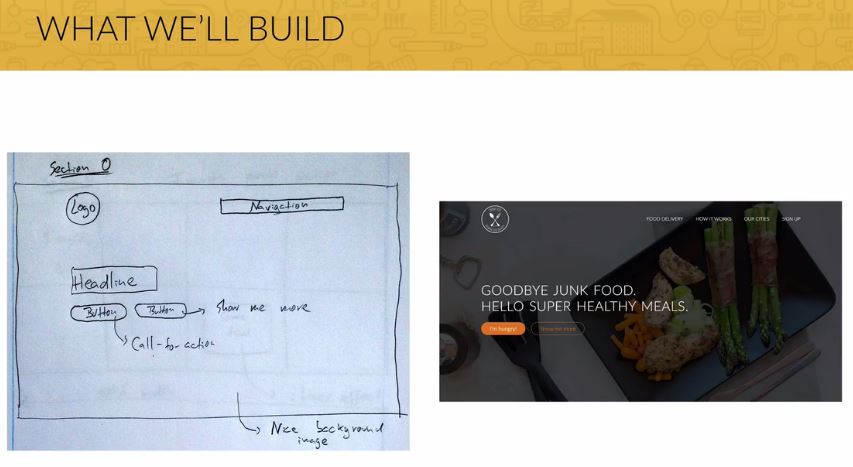 WHAT WE'LL BUILD
Section 0
Logo
Navigation
Headline
Button
Button
Show me more
Call-to-action
Nice background
image
FOOD DELIVERY
HOW IT WORKS
OUR CITIES
SIGN UP
GOODBYE JUNK FOOD.
HELLO SUPER HEALTHY MEALS.
I'm hungry!
Show me more